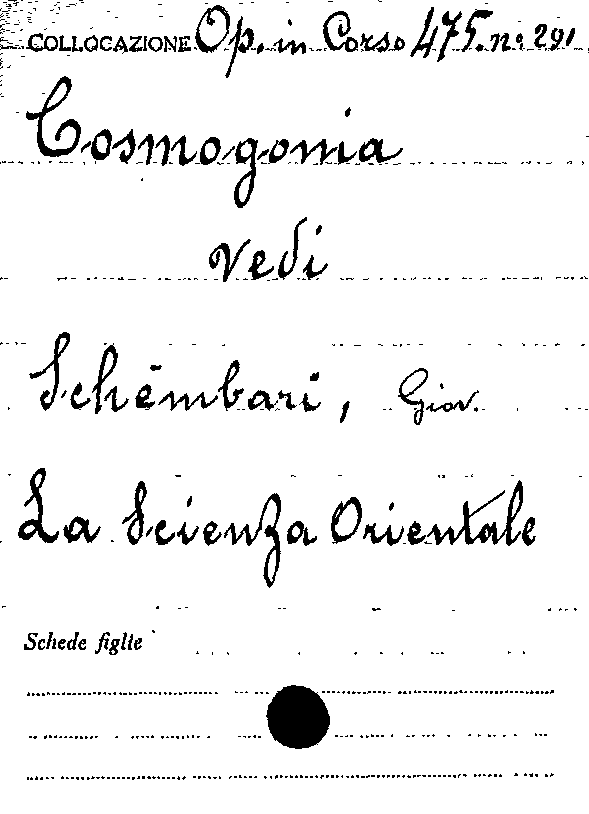 COLLOCAZIONE Op. in Corso 475. nº 291
Cosmogonia
vedi
Schembari, Giov.
La Scienza Orientale
Schede figlie